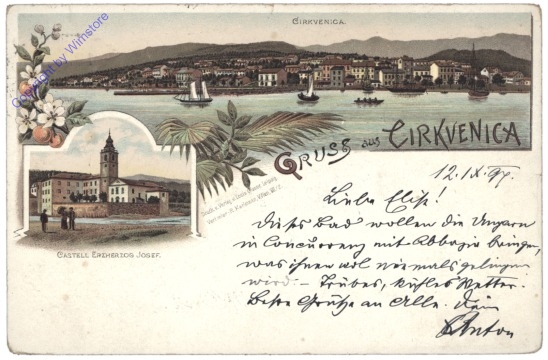 CIRKVENICA.
Copyright by Wimstore
GRUSS aus CIRKVENICA
CASTELL ERZHERZOG JOSEF.
12. IX. 97.
Liebe Elise!
Dieses Bad wollen die Ungarn
in Concurrenz mit Abbazia bringen,
was ihnen wol niemals gelingen
wird. – Trübes, kühles Wetter.
Beste Grüße an Alle. Dein
Anton